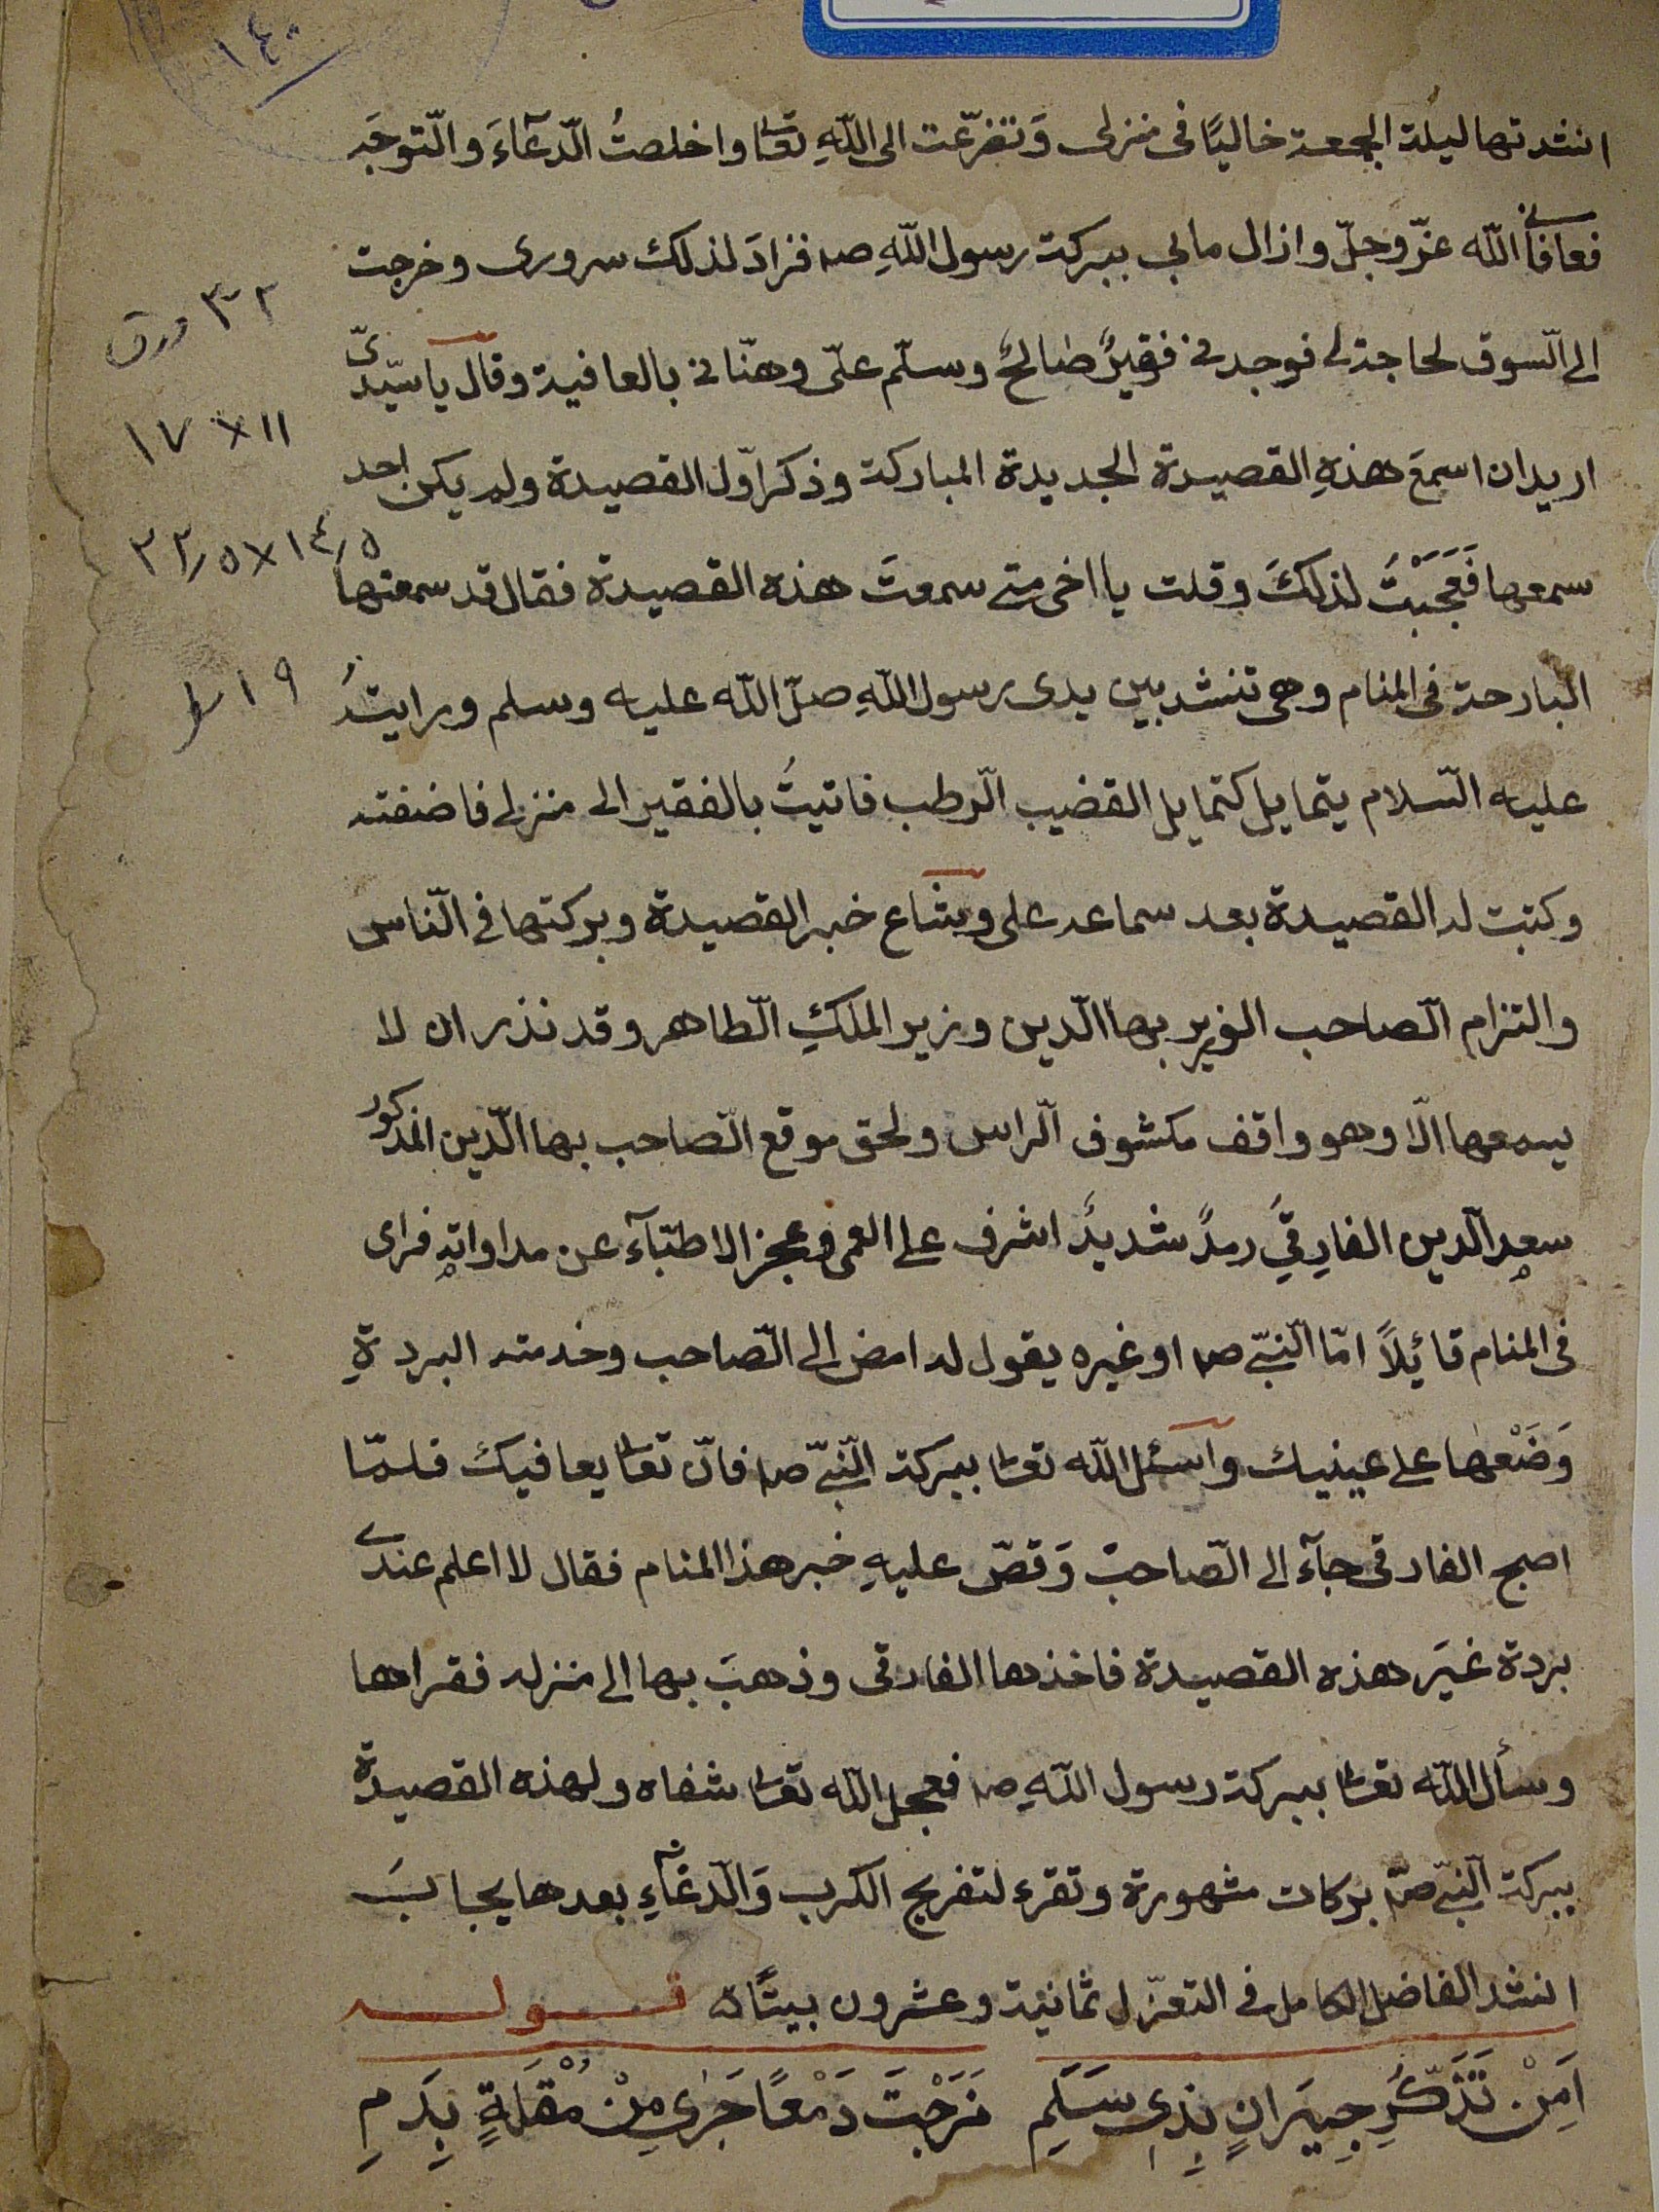 ١٤٠
انشدتها ليلة الجمعة خاليًا فى منزلى وَتضرّعت الى اللّهِ تعا واخلصتُ الدّعآءَ والتّوجّه
فعافانى اللّه عزّ وجلّ وازال مابى ببركة رسول اللّهِ صم فزادَ لذلك سرورى وخرجت
الى السّوق لحاجة لى فوجدنى فقيرٌ صالحٌ وسلّم علىّ وهنّانى بالعافية وقال يا سيّدىّ
اريد ان اسمعَ هذهِ القصيدة الجديدة المباركة وذكر اوّل القصيدة ولم يكن احد
سمعها فَعَجَبْتُ لذلكَ وقلت يا اخى متى سمعتَ هذه القصيدة فقال قد سمعتها
البارحة فى المنام وهى تنشد بين يدى رسول اللّهِ صلّ اللّه عليه وسلم ورايتهُ
عليه السّلام يتمايل كتمايل القضيب الرّطب فاتيتُ بالفقير الى منزلى فاضفته
وكتبت له القصيدة بعد سماعه على وشاع خبر القصيدة وبركتها فى النّاس
والتزام الصّاحب الوزير بها الدّين وزير الملكِ الطّاهر وقد نذر ان لا
يسمعها الّا وهو واقف مكشوف الرّاس ولحق موقع الصّاحب بها الدّين المذكور
سعد الدّين الفارِقىَّ رمدً شديدً اشرف على العمى وعجز الاطبّآء عن مداواتهِ فراى
فى المنام قائلاً امّا النّبىّ صم او غيره يقول له امض الى الصّاحب وخدمته البردةِ
وَضَعْها على عينيك واسئل اللّه تعا ببركة النّبىّ صم فانّ تعا يعافيك فلمّا
اصبح الفارقى جآء الى الصّاحب وَقصّ عليهِ خبر هذا المنام فقال لا اعلم عندى
بردة غيَر هذه القصيدة فاخذها الفارقى وذهبَ بها الى منزله فقراها
وسأل اللّه تعا ببركة رسول اللّهِ صم فعجل اللّه تعا شفاه ولهذه القصيدة
ببركة النّبىّ صم بركات مشهورة وتقرء لتفريج الكرب وَالدّعآءِ بعدها يجابَ
انشد الفاضل الكامل فى التغزّل ثمانية وعشرون بيتًا قوله
اَمِنْ تَذَكّرُِ جِيَرانٍ بِذِى سَلَمِ مَزَجْتَ دَمْعًا جَرٰى مِنْ مُقْلَةٍ بِدَمِ
٣٢ ورق
١١ × ١٧
١٤٫٥ × ٢٢٫٥
١٩ سط